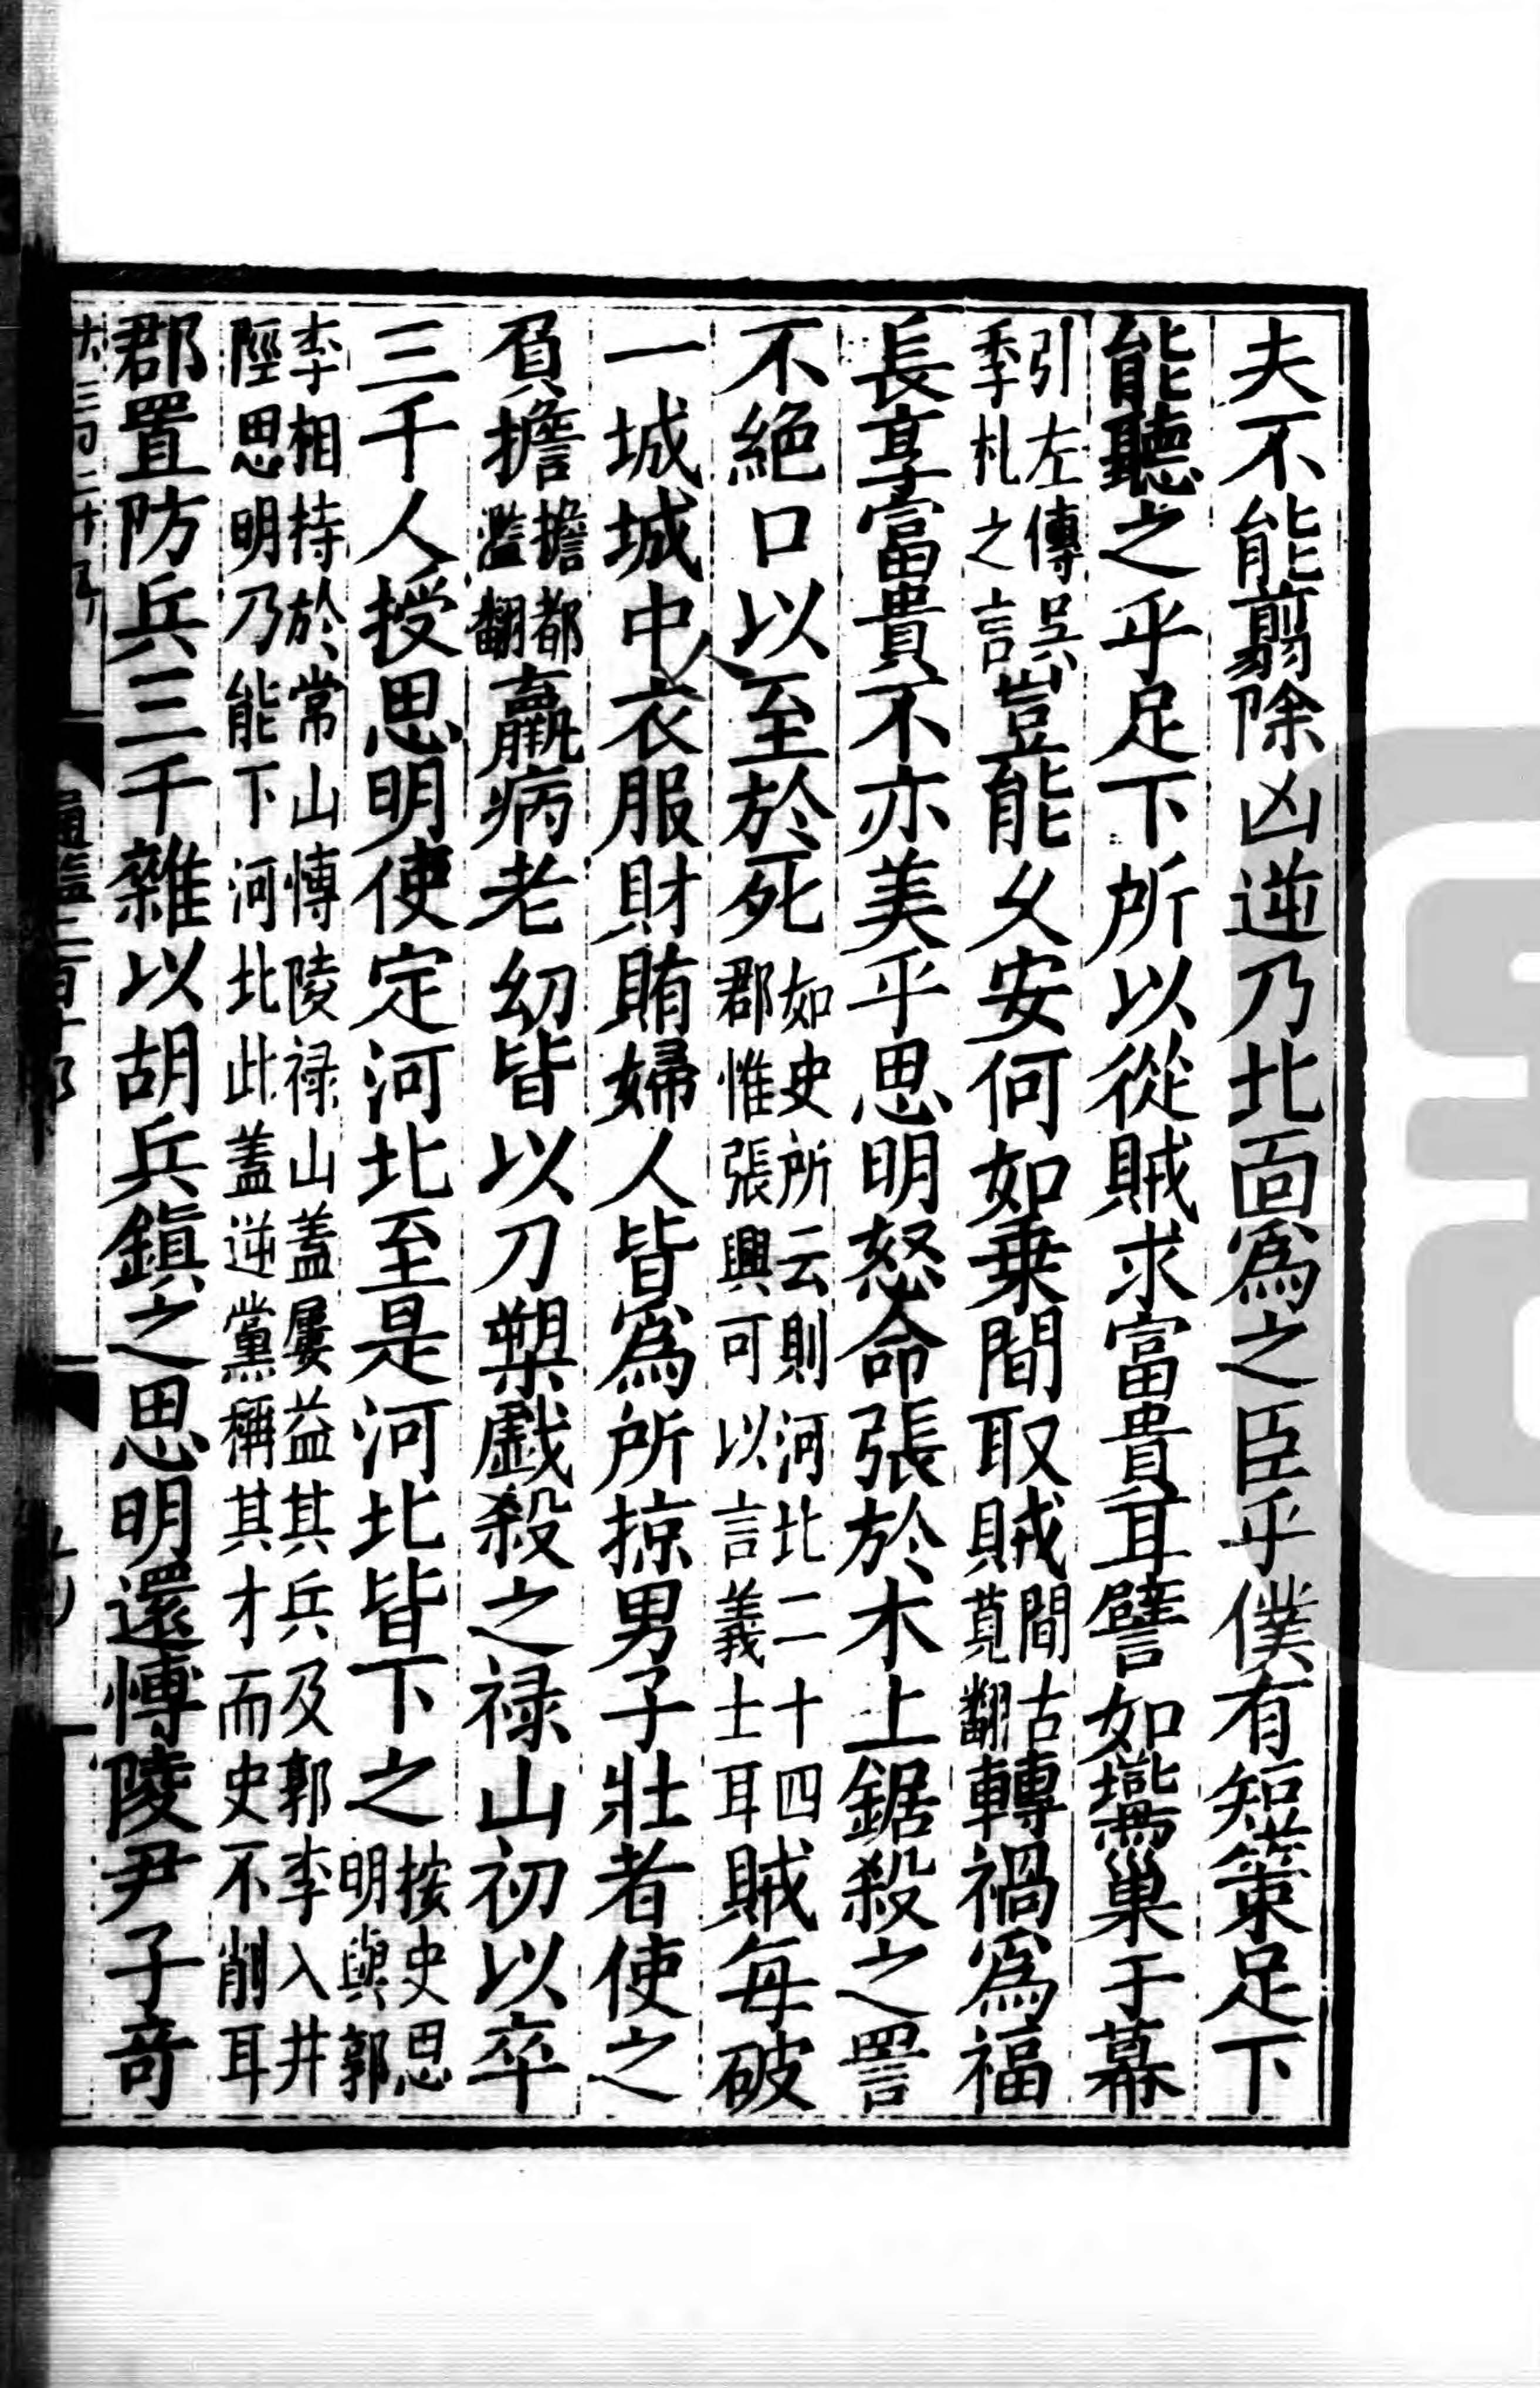 夫不能翦除凶逆乃北面爲之臣乎僕有短策足下
能聽之乎足下所以從賊求富貴耳譬如鷰巢于幕
引左傳吳
季札之言
豈能乆安何如乗間取賊
間古
莧翻
轉禍爲福
長享富貴不亦美乎思明怒命張於木上鋸殺之詈
不絶口以至於死
如史所云則河北二十四
郡惟張興可以言義士耳
賊每破
一城城中衣服財賄婦人皆爲所掠男子壯者使之
負擔
擔都
濫翻
羸病老幼皆以刀槊戲殺之禄山初以卒
三千人授思明使定河北至是河北皆下之
按史思
明與郭
李相持於常山慱陵禄山盖屢益其兵及郭李入井
陘思明乃能下河北此盖逆黨稱其才而史不削耳
郡置防兵三千雜以胡兵鎭之思明還慱陵尹子奇